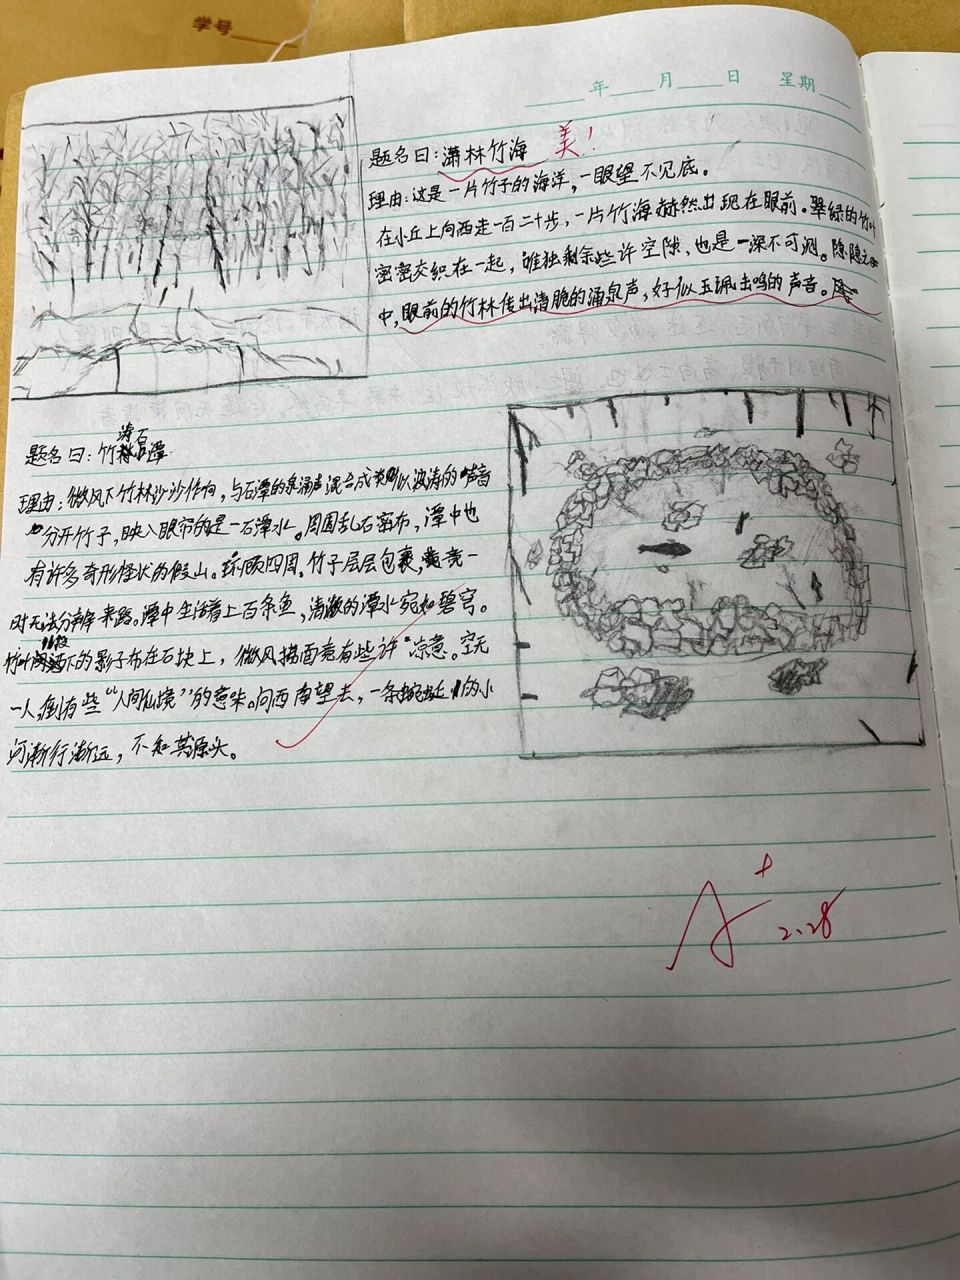 学号
年 月 日 星期
题名曰：潇林竹海 美！
理由：这是一片竹子的海洋，一眼望不见底。
在小丘上向西走一百二十步，一片竹海赫然出现在眼前。翠绿的竹叶
密密交织在一起，唯独剩余些许空隙，也是一深不可测。隐隐之
中，眼前的竹林传出清脆的涌泉声，好似玉珮击鸣的声音。
题名曰：竹涛石潭
理由：微风下竹林沙沙作响，与石潭的泉涌声混合成类似波涛的声音
分开竹子，映入眼帘的是一石潭水。周围乱石密布，潭中也
有许多奇形怪状的假山。环顾四周，竹子层层包裹，竟一
时无法分辨来路。潭中生活着上百条鱼，清澈的潭水宛如碧穹。
竹叶间下的影子布在石块上，微风拂面竟有些许凉意。空无
一人，倒有些“人间仙境”的意味。向西南望去，一条蜿蜒的小
河渐行渐远，不知其源头。
A+
2.28